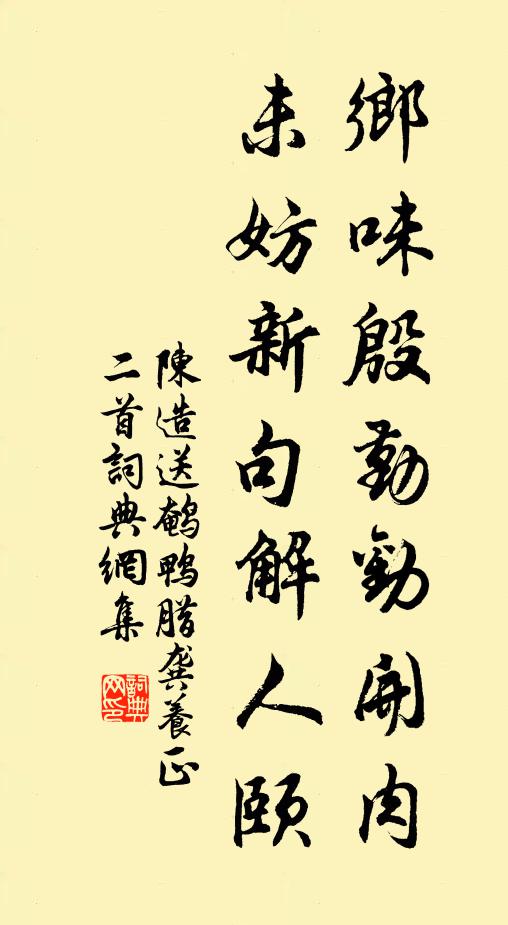 鄉味殷勤勸開肉
未妨新句解人頤
陳造送鵪鴨腊龔養正
二首詞典網集
詞典
网印